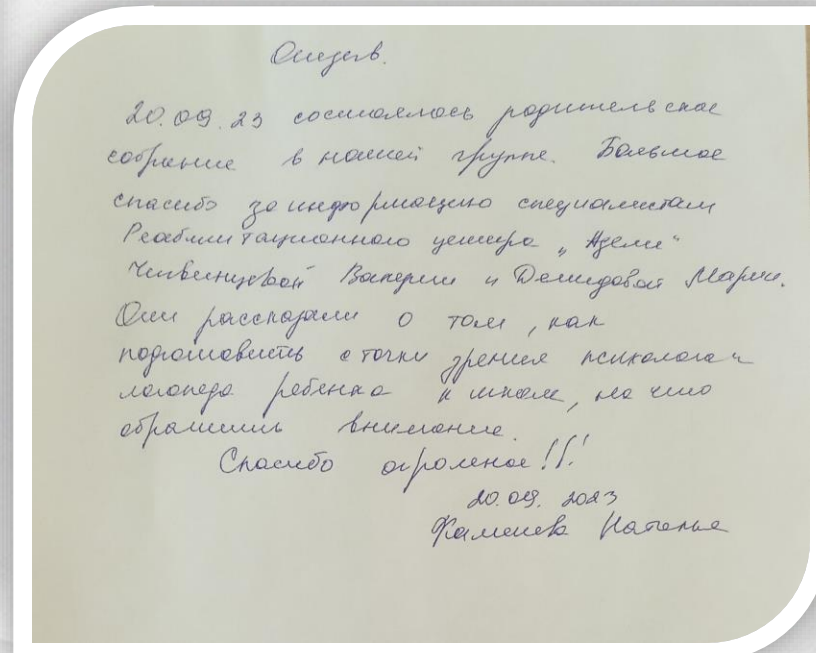 Отзыв.
20.09.23 состоялось родительское
собрание в нашей группе. Большое
спасибо за информацию специалистам
Реабилитационного центра „Адели“
Валерии и Демидовой Марии.
Они рассказали о том, как
подготовить с точки зрения психолога и
логопеда ребенка к школе, на что
обратить внимание.
Спасибо огромное!!!
20.09.2023
Наталья